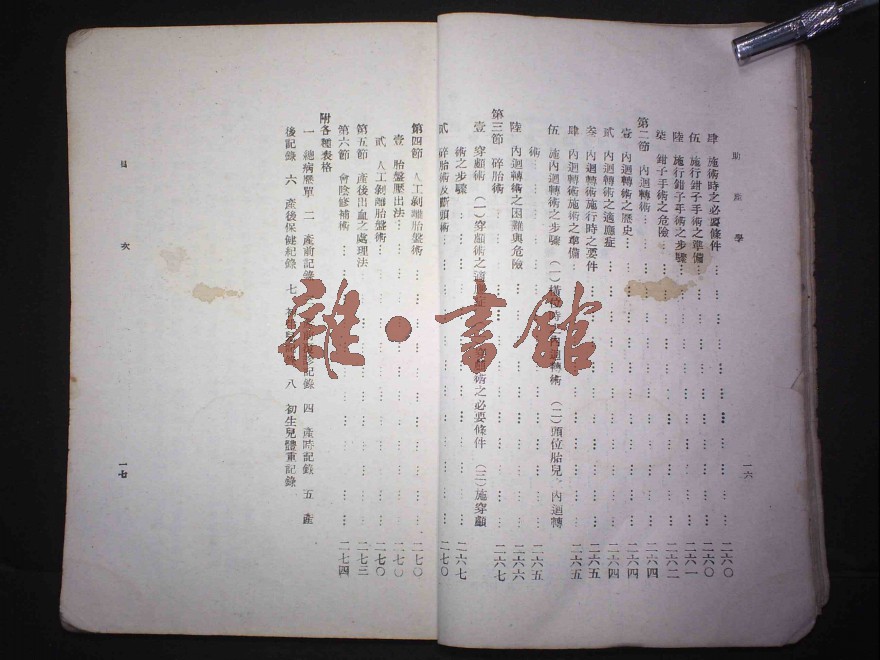 助產學
一六
肆 施術時之必要條件 … 二六〇
伍 施行鉗子手術之準備 … 二六〇
陸 施行鉗子手術之步驟 … 二六一
柒 鉗子手術之危險 … 二六二
第二節 內迴轉術 … 二六四
壹 內迴轉術之歷史 … 二六四
貳 內迴轉術之適應症 … 二六四
叁 內迴轉術施行時之要件 … 二六五
肆 內迴轉術施術之準備 … 二六五
伍 施內迴轉術之步驟 (一)橫位時之內迴轉術 (二)頭位胎兒,內迴轉
術 … 二六五
陸 內迴轉術之困難與危險 … 二六六
第三節 碎胎術 … 二六七
壹 穿顱術 (一)穿顱術之適應症 術之必要條件 (三)施穿顱
術之步驟 … 二六七
貳 碎胎術及斷頭術 … 二七〇
第四節 人工剝離胎盤術 … 二七〇
壹 胎盤壓出法 … 二七〇
貳 人工剝離胎盤術 … 二七〇
第五節 產後出血之處理法 … 二七三
第六節 會陰修補術 … 二七四
附各種表格
一 總病歷單 二 產前記錄 記錄 四 產時記錄 五 產
後記錄 六 產後保健紀錄 七 初生 八 初生兒體重記錄
目次
一七
雜·書館